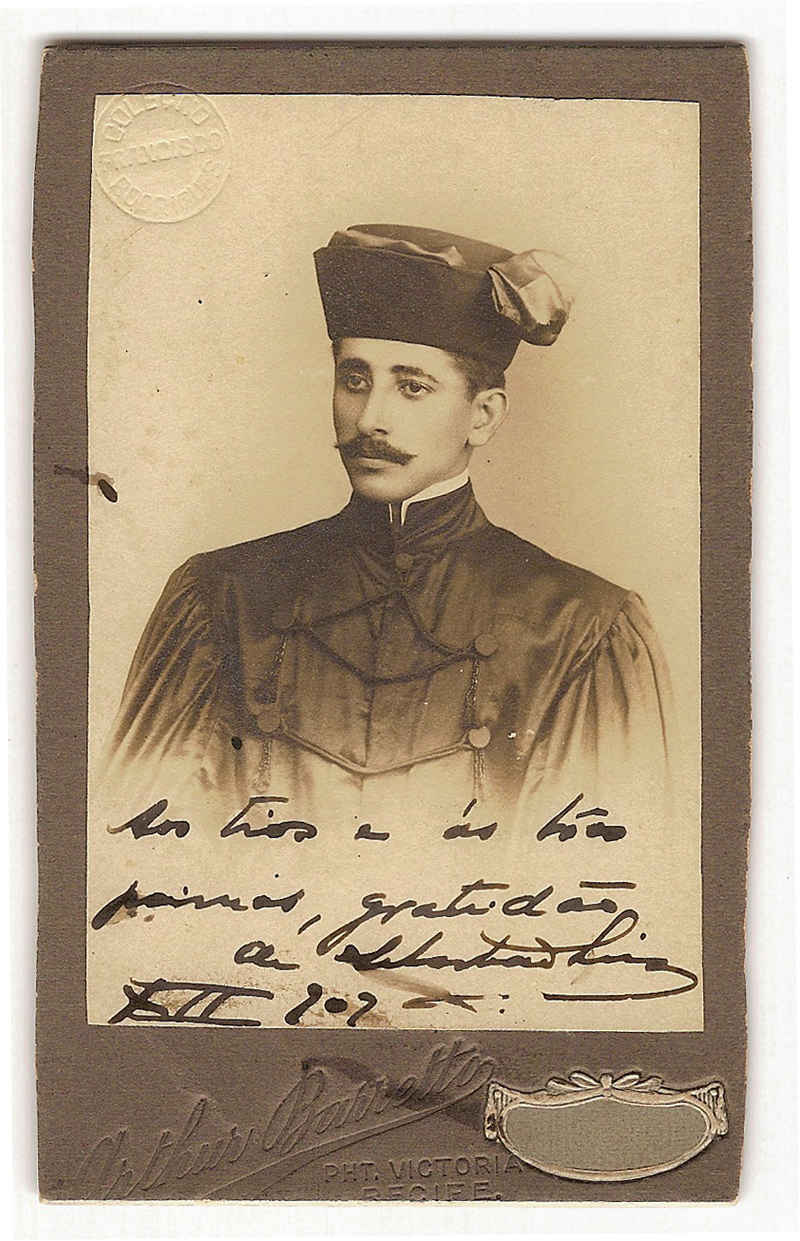 COLEÇÃO
FRANCISCO
RODRIGUES
Aos tios e ás bôas
primas, gratidão
de Sebastião Lins
XII 909
Arthur Barretto
PHT. VICTORIA
RECIFE.